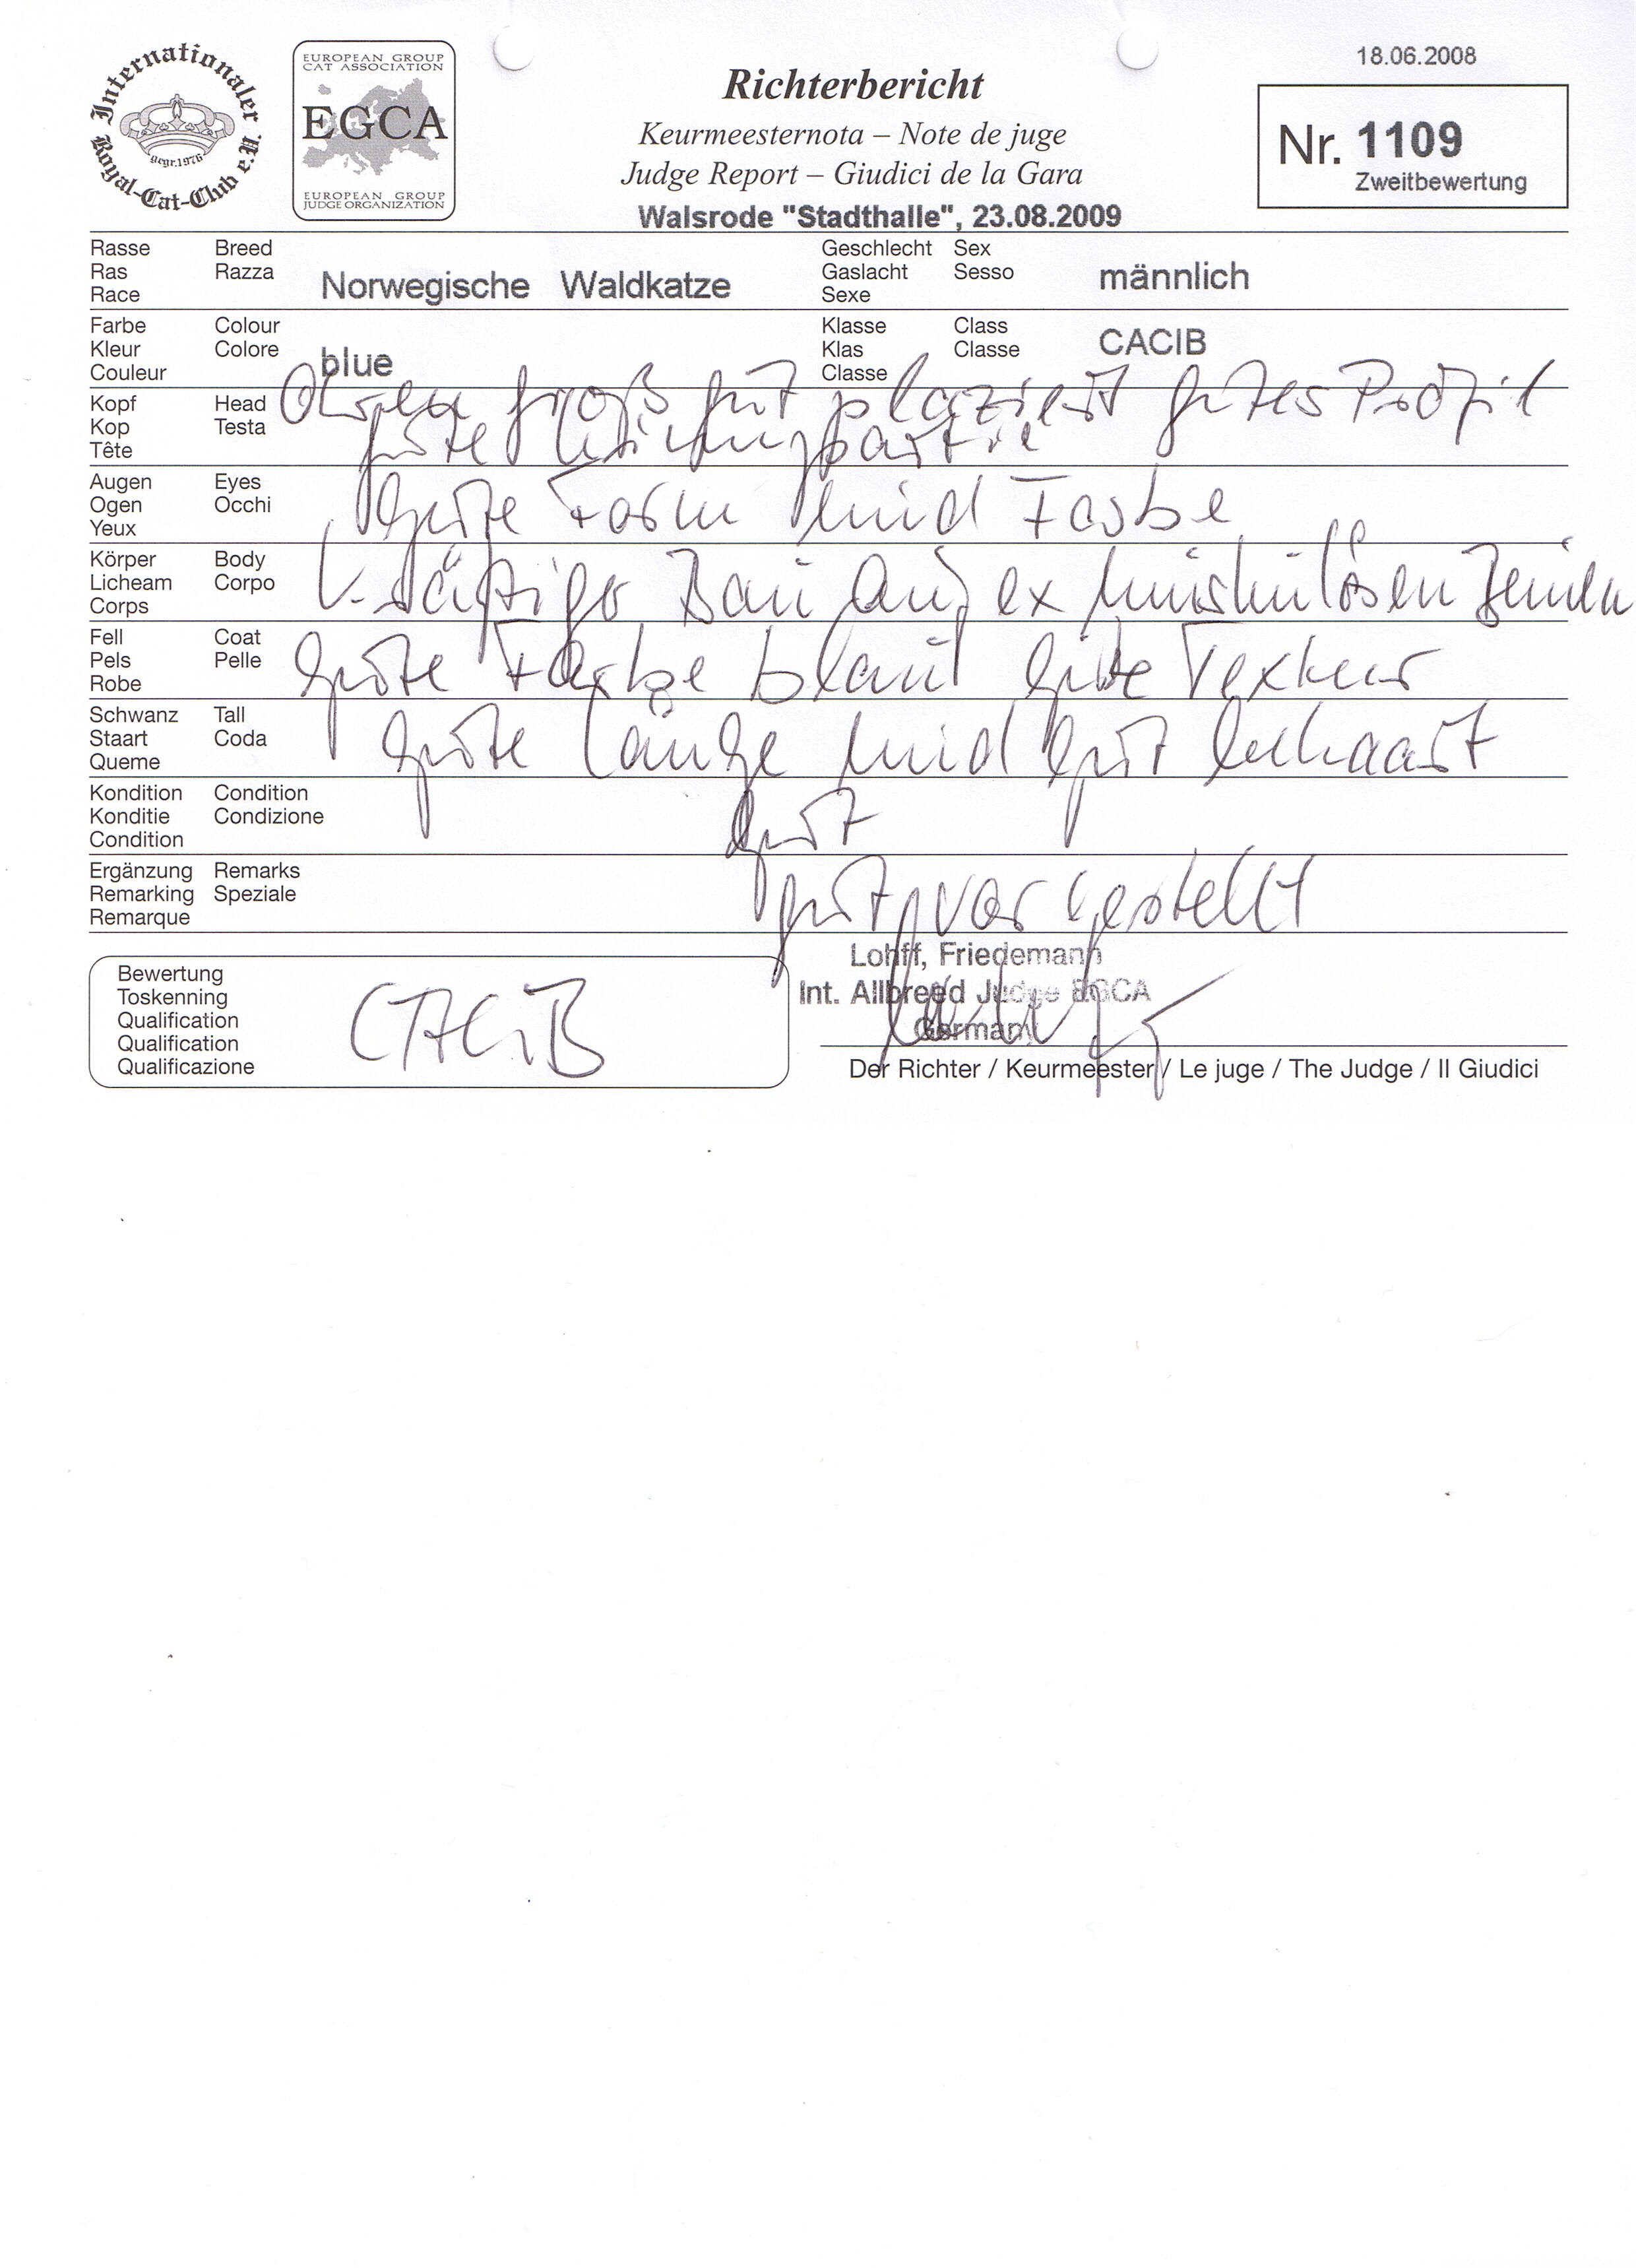 Internationaler Royal-Cat-Club e.V.
gegr. 1976
EUROPEAN GROUP
CAT ASSOCIATION
EGCA
EUROPEAN GROUP
JUDGE ORGANIZATION
Richterbericht
Keurmeesternota – Note de juge
Judge Report – Giudici de la Gara
Walsrode "Stadthalle", 23.08.2009
18.06.2008
Nr. 1109
Zweitbewertung
Rasse Breed
Ras Razza
Race
Norwegische Waldkatze
Geschlecht Sex
Gaslacht Sesso
Sexe
männlich
Farbe Colour
Kleur Colore
Couleur
blue
Klasse Class
Klas Classe
Classe
CACIB
Kopf Head
Kop Testa
Tête
Ohren groß gut plaziert gutes Profil
gute
Augen Eyes
Ogen Occhi
Yeux
Gute Form und Farbe
Körper Body
Licheam Corpo
Corps
Kräftiger Bau auf ex muskulösen Beinen
Fell Coat
Pels Pelle
Robe
Gute Farbe blau gute Textur
Schwanz Tall
Staart Coda
Queme
Gute Länge und gut behaart
Kondition Condition
Konditie Condizione
Condition
Gut
Ergänzung Remarks
Remarking Speziale
Remarque
gut vorgestellt
Bewertung
Toskenning
Qualification
Qualification
Qualificazione
CACIB
Lohff, Friedemann
Int. Allbreed Judge EGCA
Germany
Der Richter / Keurmeester / Le juge / The Judge / Il Giudici